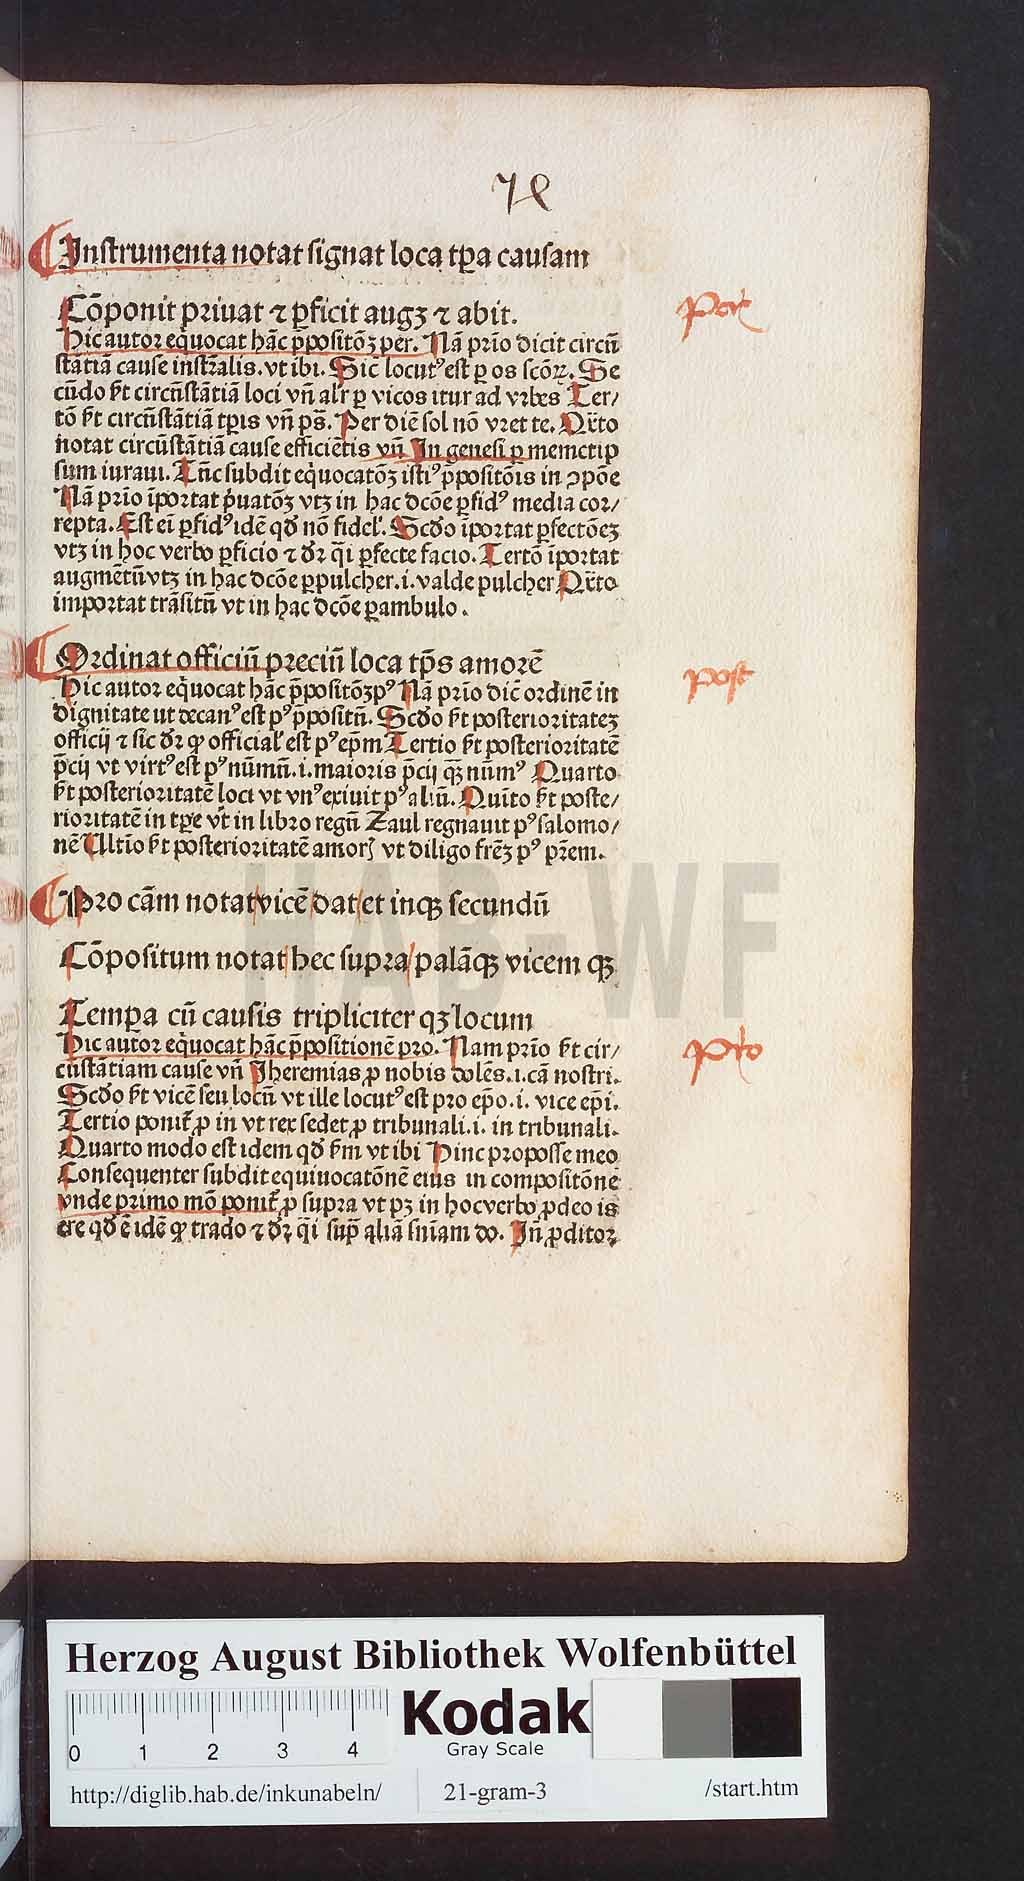 78
Instrumenta notat signat loca tꝑa causam
Cōponit priuat ⁊ ꝑficit augꝫ ⁊ abit.
Per
Hic autor eq̇uocat hāc p̄positōꝫ per. Nā prīo dicit circū
stātiā cause instr̄alis. vt ibi. Sic̄ locut⁹ est ꝑ os scōꝝ. Se
cūdo k̄t circūstātiā loci vn̄ alr̄ ꝑ vicos itur ad vrbes Ter/
tō k̄t circūstātiā tꝑis vn̄ ps̄. Per diē sol nō vret te. Qr̄to
notat circūstātiā cause efficiētis vn̄ In genesi ꝑ memetip
sum iuraui. Tūc subdit eq̇uocatōꝫ isti⁹ p̄positōis in ↄpōe
Nā prīo īportat ṗuatōꝫ vtꝫ in hac dcōe ꝑfid⁹ media cor/
repta. Est eī ꝑfid⁹ idē qđ nō fidel̕. Scđo īportat ꝑfectōeꝫ
vtꝫ in hoc verbo ꝑficio ⁊ dr̄ q̄i ꝑfecte facio. Tertō īportat
augmētū vtꝫ in hac dcōe ꝑpulcher .i. valde pulcher Qr̄to
importat trāsitū vt in hac dcōe ꝑambulo.
Ordinat officiū preciū loca tp̄s amorē
post
Hic autor eq̇uocat hāc p̄positōꝫ p⁹ Nā prīo dic̄ ordinē in
dignitate ut decan⁹ est p⁹ p̄positū. Scđo k̄t posterioritateꝫ
officij ⁊ sic dr̄ ꝙ official̕ est p⁹ ep̄m Tertio k̄t posterioritatē
p̄cij vt virt⁹ est p⁹ nūmū .i. maioris p̄cij qꝫ̄ nūm⁹ Quarto
k̄t posterioritatē loci vt vn⁹ exiuit p⁹ aliū. Quīto k̄t poste/
rioritatē in tꝑe vt in libro regū Zaul regnauit p⁹ salomo/
nē Ultīo k̄t posterioritatē amorꝭ vt diligo fr̄eꝫ p⁹ pr̄em.
Pro cām notat vicē dat et inqꝫ secundū
Cōpositum notat hec supra palāqꝫ vicem qꝫ
Temꝑa cū causis tripliciter qꝫ locum
pro
Hic autor eq̇uocat hāc p̄positionē pro. Nam prīo k̄t cir/
cūstātiam cause vn̄ Jheremias ꝓ nobis dolēs .i. cā nostri.
Scđo k̄t vicē seu locū vt ille locut⁹ est pro ep̄o .i. vice ep̄i.
Tertio ponit̄ ꝓ in vt rex sedet ꝓ tribunali .i. in tribunali.
Quarto modo est idem qđ k̄m vt ibi Hinc pro posse meo
Consequenter subdit equiuocatōnē eius in compositōnē
vnde primo mō ponit̄ ꝓ supra vt pꝫ in hoc verbo ꝓdeo is
ere qđ ē idē ꝙ trado ⁊ dr̄ q̄i sup̄ aliā sn̄iam do. Jn̄ ꝓditor
HAB-WF
Herzog August Bibliothek Wolfenbüttel
0 1 2 3 4
Kodak
Gray Scale
http://diglib.hab.de/inkunabeln/ 21-gram-3 /start.htm